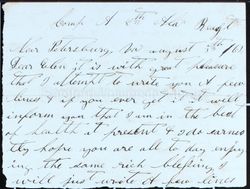 Near Petersburg Va august
Dear Ellen it is with great pleasure
that I attempt to write you a few
lines & if you ever get it it will
inform you that I am in the best
of health at present & I do earnes
tly hope you are all to day enjoy
ing the same rich blessing I
will just write a few lines